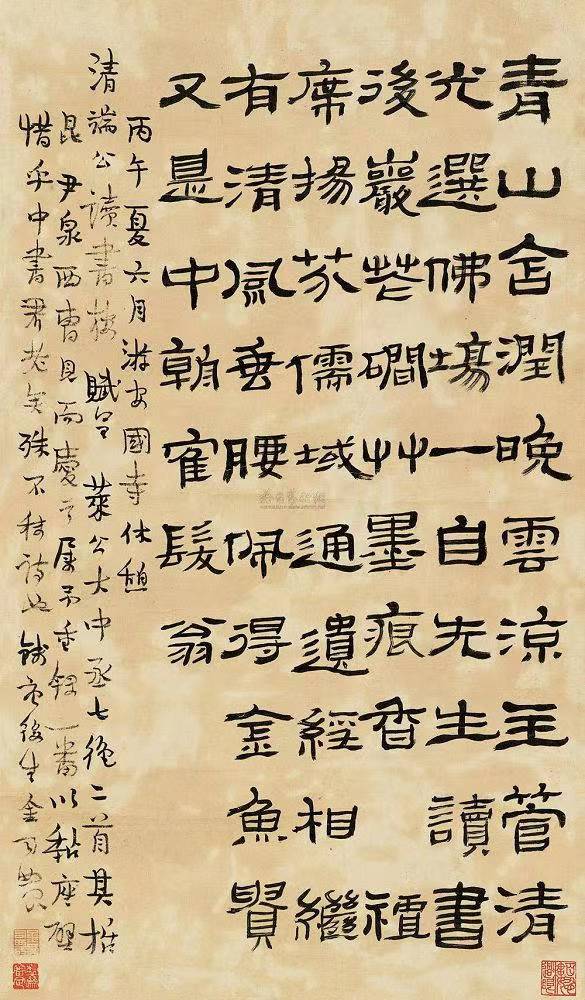 青山含潤晚雲涼主管清
光選佛場一自先生讀書
後巖花磵艸墨痕香
席揚芬儒域通遺經相繼
有清風垂腰佩得金魚賢
又是中朝寉髮翁
丙午夏六月游安國寺休憩
清端公讀書樓賦呈萊公大中丞七絕二首其
昆尹泉西曹見而慶之屬予重錄一番以黏座壁
惜乎中書君老矣殊不稱詩也錢唐後生金司農